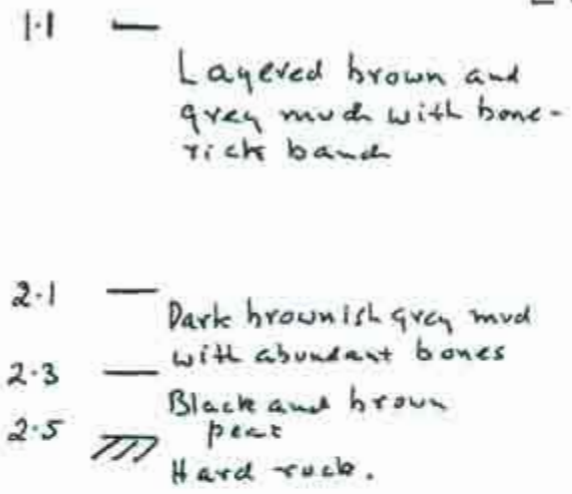 1.1
Layered brown and
grey mud with bone-
rich band
2.1
Dark brownish grey mud
with abundant bones
2.3
Black and brown
2.5
peat
Hard rock.